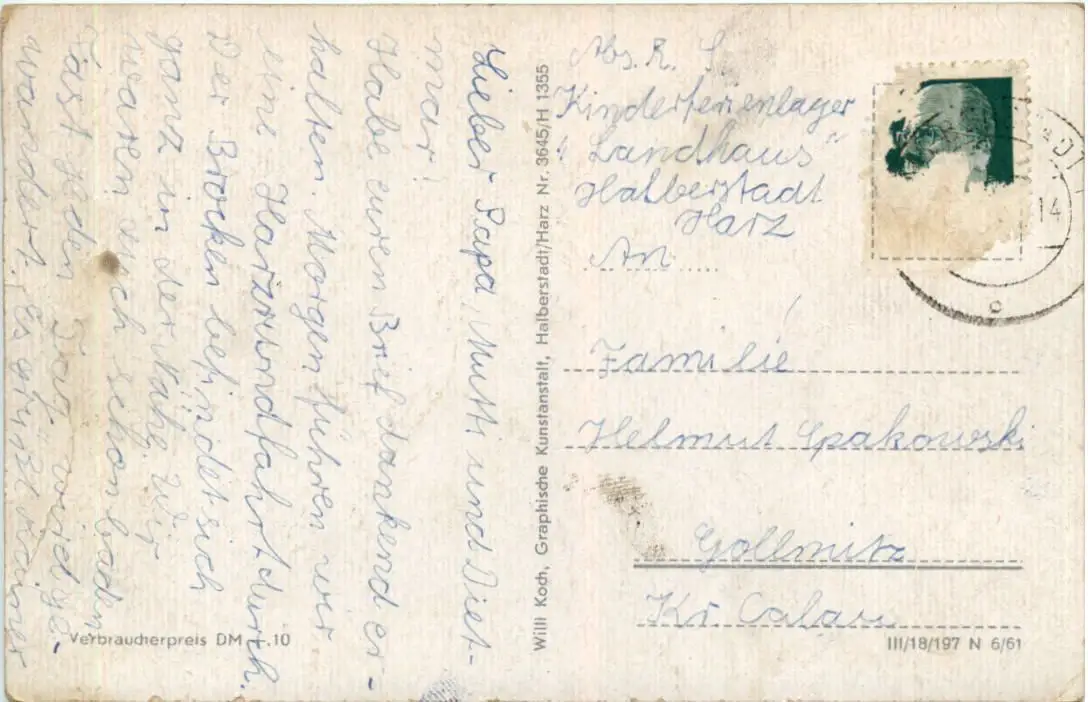 Lieber Papa, Mutti und Diet-
mar!
Habe euren Brief dankend er-
halten. Morgen führen wir
eine Harzrundfahrt durch.
Der Brocken befindet sich
ganz in der Nähe. Wir
waren auch schon baden
Fast jeden Tag wird ge-
wandert. Es grüßt Rainer
Willi Koch, Graphische Kunstanstalt, Halberstadt/Harz Nr. 3645/H 1355
Abs. R. S.
Kinderferienlager
"Landhaus"
Halberstadt
Harz
An
Familie
Helmut Spakowski
Gollmitz
Kr. Calau
14
Verbraucherpreis DM -.10
III/18/197 N 6/61